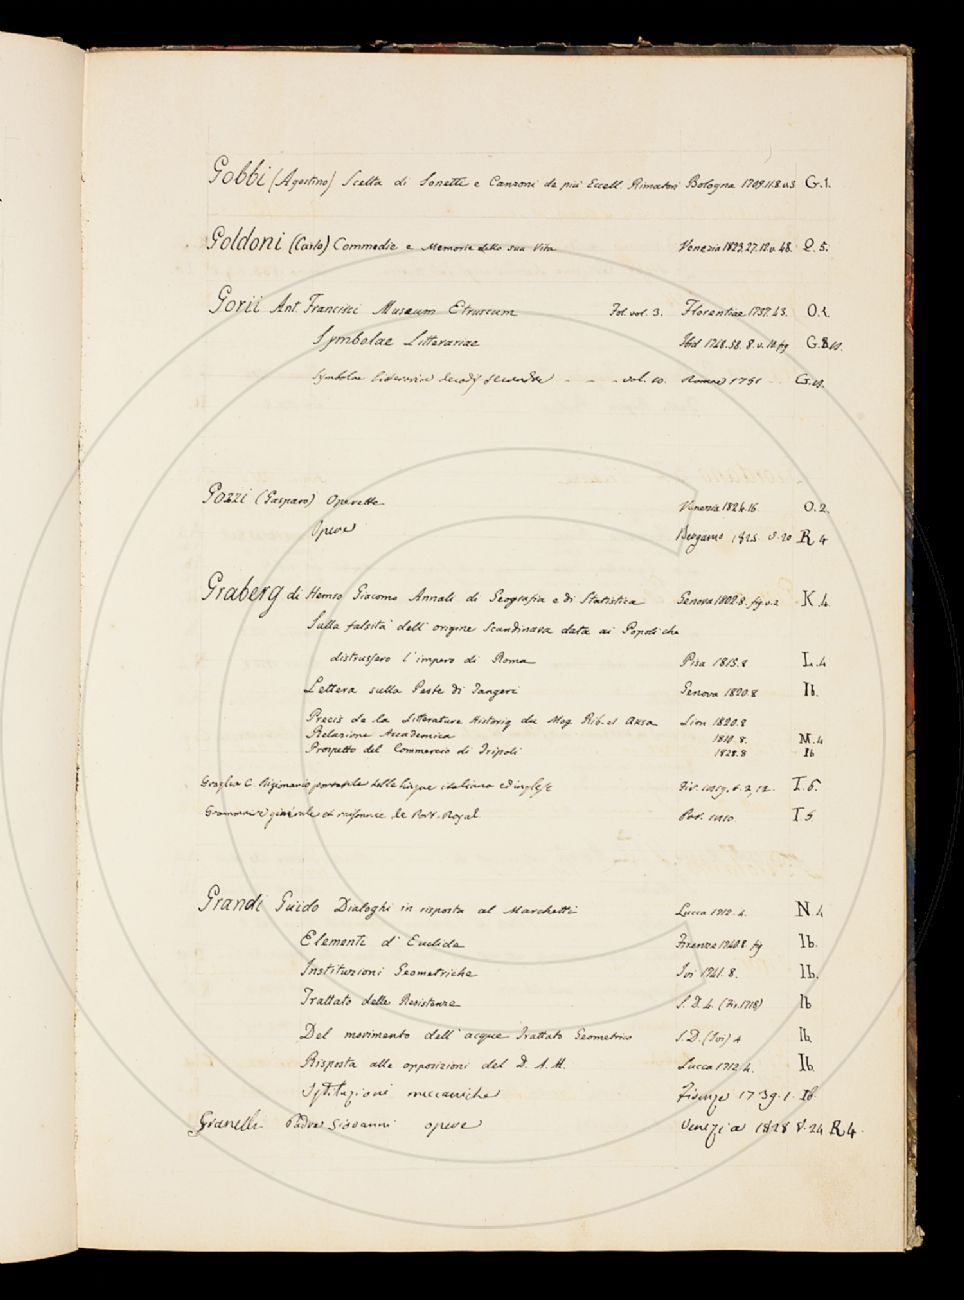 Gobbi (Agostino) Scelta di Sonetti e Canzoni de più Eccell. Rimatori Bologna 1709.11.8.v.3 G.1.
Goldoni (Carlo) Commedie e Memorie della sua Vita Venezia 1823.27.12 v. 48. Q. 5.
Gorii Ant. Francisci Museum Etruscum Fol. vol. 3. Florentiae 1737.43. O.1.
Symbolae Litterariae Ibid 1748.58. 8. v. 10 fig G.8
Symbolae litterariae decadis secundae - - - vol. 10. Romae 1751 G.
Gozzi (Gasparo) Operette Venezia 1824.16. O.2.
Opere Bergamo 1825. v. 20 R 4
Graberg di Hemso Giacomo Annali di Geografia e di Statistica Genova 1802.8. fig v. 2 K.4.
Sulla falsità dell' origine Scandinava data ai Popoli che
distrussero l'impero di Roma Pisa 1815.8 L.4
Lettera sulla Peste di Tangeri Genova 1820.8 Ib.
Precis de la Litterature Historiq du Mog. Rib. el Aksa Lion 1820.8
Relazione Accademica 1810.8. M.4
Prospetto del Commercio di Tripoli 1828.8 Ib
Graglia C. Dizionario portatile delle lingue italiana ed inglese 12. T.5.
Grammaire générale et raisonnée de Port-Royal Par. 1810 T.5
Grandi Guido Dialoghi in risposta al Marchetti Lucca 1712.4. N.4
Elementi d'Euclide Firenze 1740.8. fig Ib.
Instituzioni Geometriche Ivi 1741.8. Ib.
Trattato delle Resistenze S.D.4. (Fir. 1718) Ib
Del movimento dell' acque Trattato Geometrico S.D. (Ivi) 4 Ib.
Risposta alle opposizioni del D. A.M. Lucca 1712.4. Ib.
Istituzioni meccaniche Firenze 1739. 1. Ib.
Granelli Padre Giovanni opere Venezia 1828 v. 24 R 4.